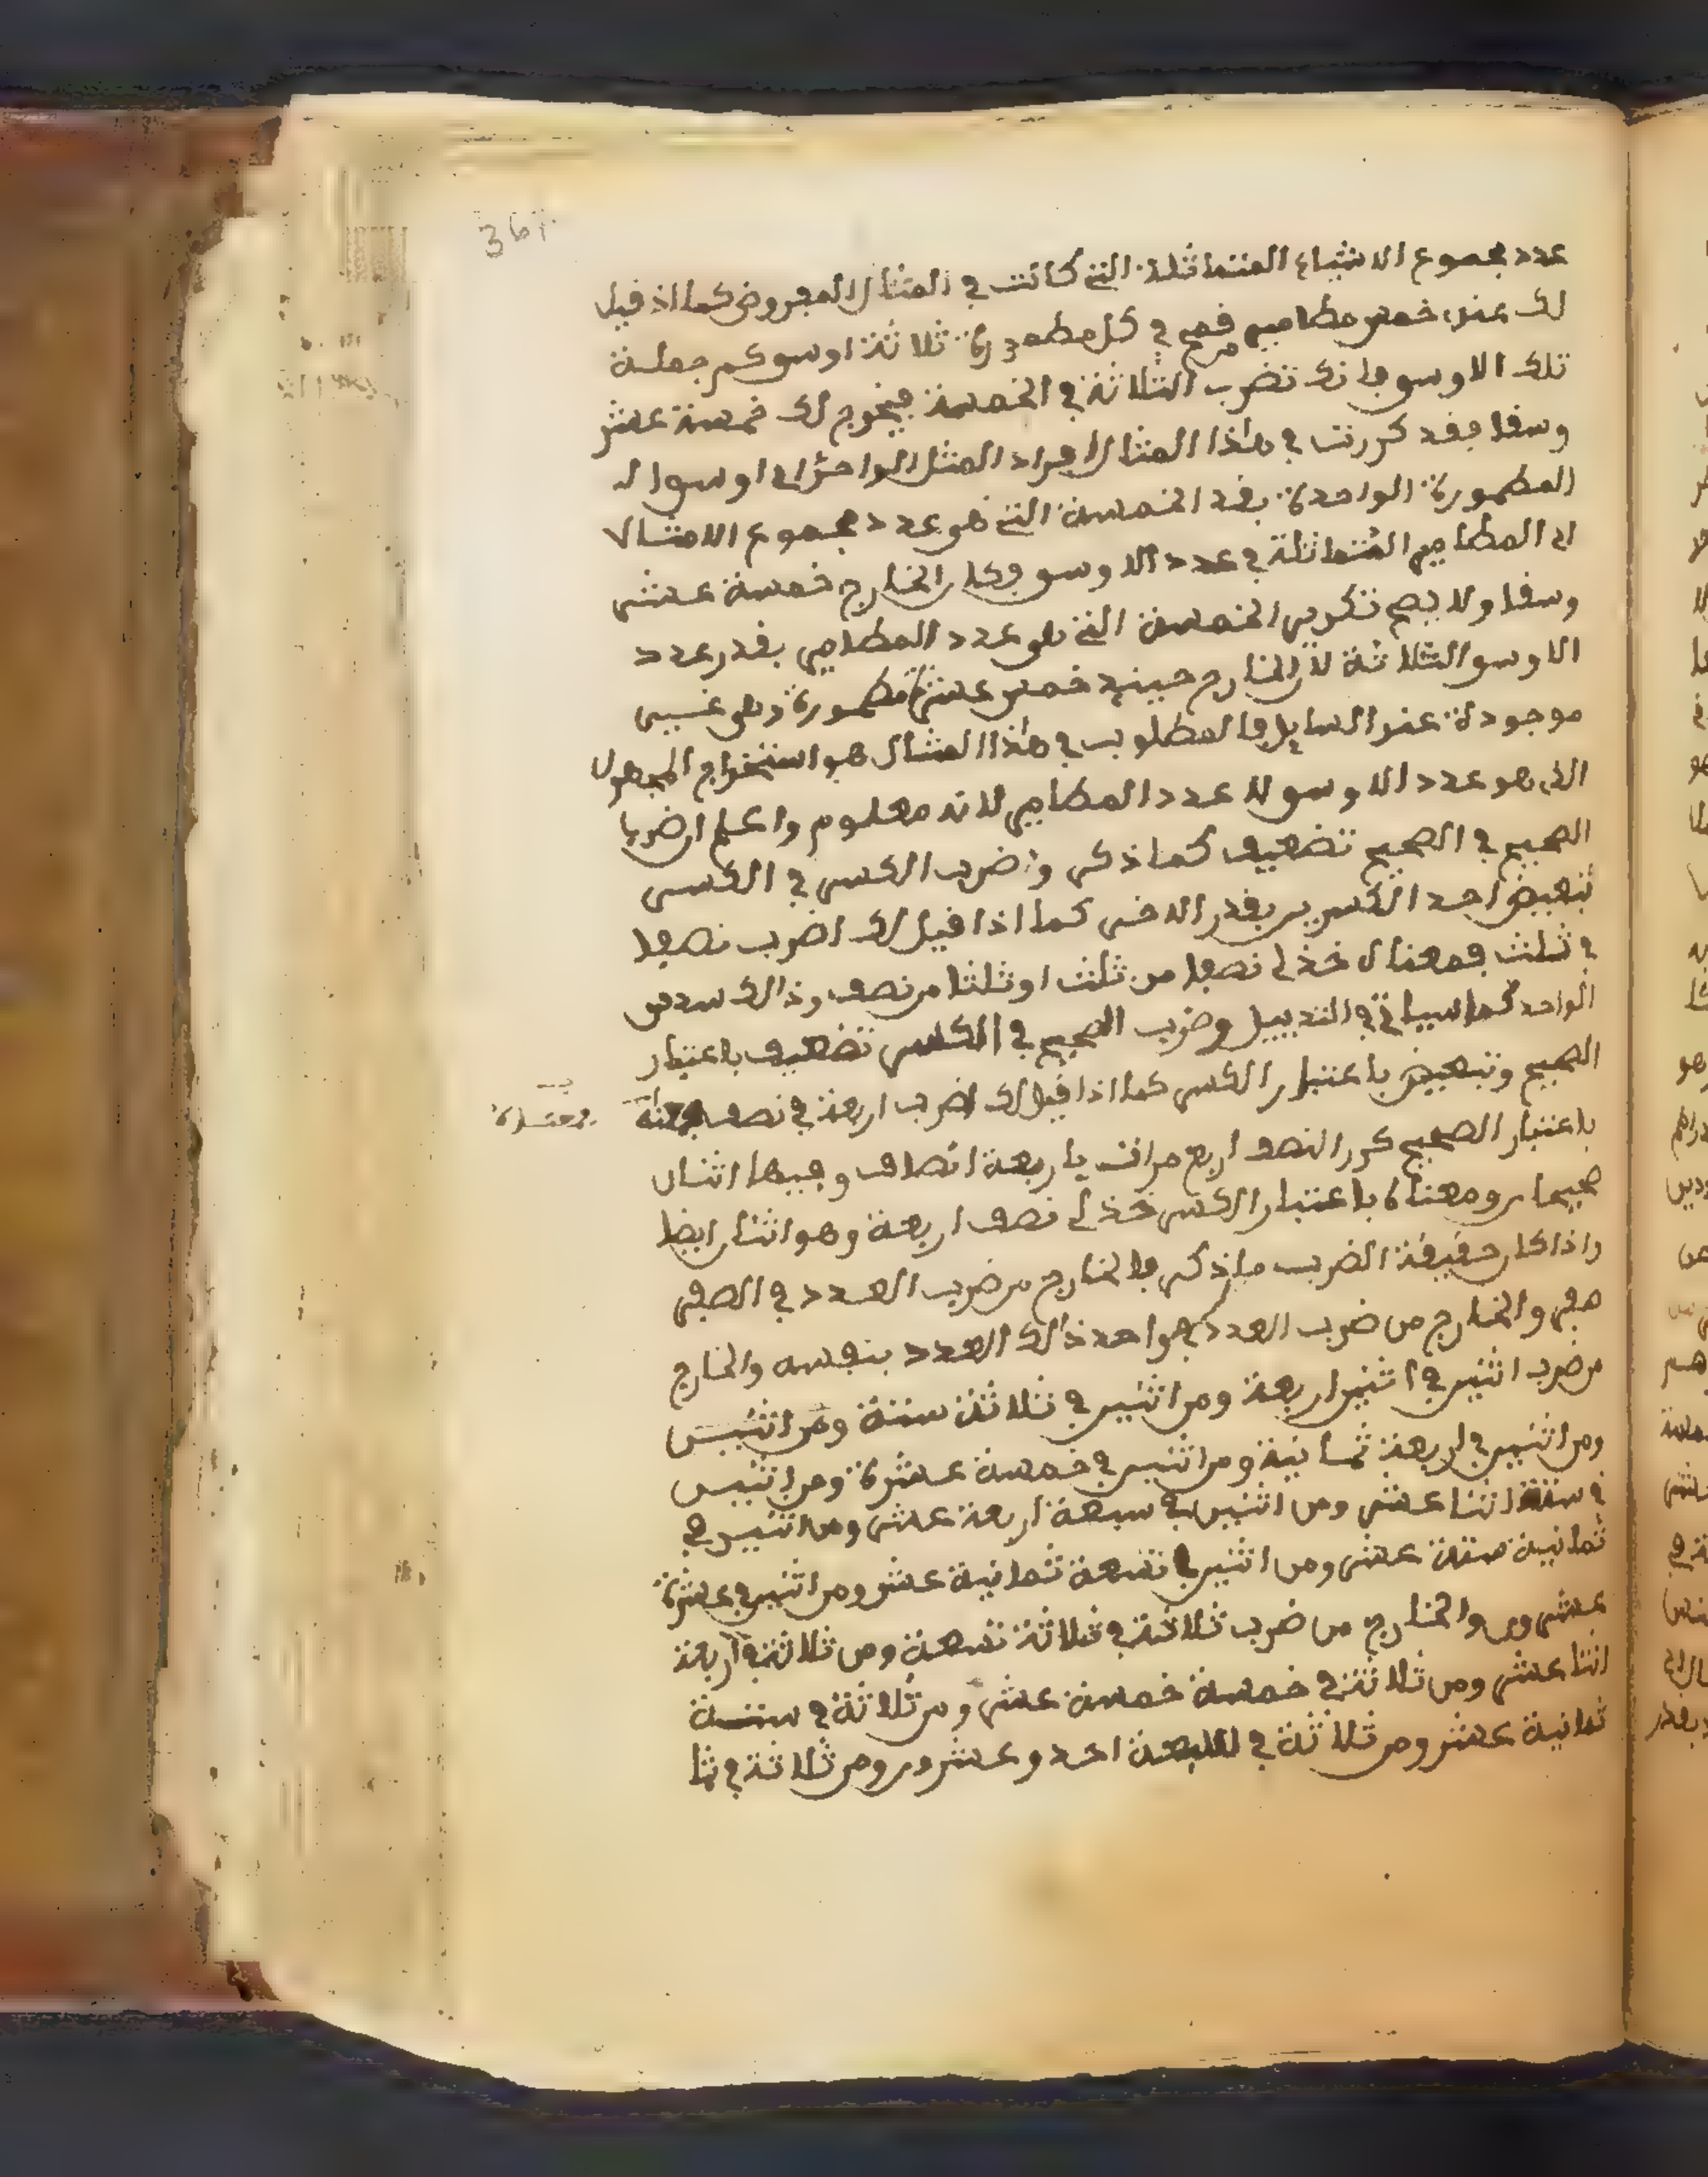 عدد مجموع الاشياء المتماثلة التي كانت في المثال المفروض كما اذ قيل
لك عندي خمس مطامير قمح في كل مطمورة ثلاثة اوسق كم جملة
تلك الاوسق فانك تضرب الثلاثة في الخمسة فيخرج لك خمسة عشر
وسقا فقد كررت في هذا المثال افراد المثل الواحد اي اوسق ال
المطمورة الواحدة بقد الخمسة التي هو عدد مجموع الامثال
اي المطامير المتماثلة في عدد الاوسق فكان الخارج خمسة عشر
وسقا ولا يصح تكرير الخمسة التي هو عدد المطامير بقدر عدد
الاوسق الثلاثة لان الخارج حينيد خمس عشرة مطمورة وهي غير
موجودة عند السايل فالمطلوب في هذا المثال هو استخراج المجهول
الذي هو عدد الاوسق لا عدد المطامير لانه معلوم واعلم ان ضرب
الصحيح في الصحيح تضعيف كما ذكر وضرب الكسر في الكسر
تبعيض احد الكسرين بقدر الاخر كما اذا قيل لك اضرب نصفا
في ثلث فمعناه خذ لي نصفا من ثلث او ثلثا من نصف وذالك سدس
الواحد كما سياتي في التذييل وضرب الصحيح في الكسر تضعيف باعتبار
الصحيح وتبعيض باعتبار الكسر كما اذا قيل لك اضرب اربعة في نصف فمعناه
باعتبار الصحيح كرر النصف اربع مرات باربعة انصاف وفيها اثنان
صحيحان ومعناه باعتبار الكسر خذ لي نصف اربعة وهو اثنان ايضا
واذا كان حقيقة الضرب ما ذكر فالخارج من ضرب العدد في الصفر
صفر والخارج من ضرب العدد في واحد ذالك العدد بنفسه والخارج
من ضرب اثنين في اثنين اربعة ومن اثنين في ثلاثة ستة ومن اثنين
ومن اثنين في اربعة ثمانية ومن اثنين في خمسة عشرة ومن اثنين
في ستة اثنا عشر ومن اثنين في سبعة اربعة عشر ومن اثنين في
ثمانية ستة عشر ومن اثنين في تسعة ثمانية عشر ومن اثنين في عشرة
عشرون والخارج من ضرب ثلاثة في ثلاثة تسعة ومن ثلاثة في اربعة
اثنا عشر ومن ثلاثة في خمسة خمسة عشر ومن ثلاثة في ستة
ثمانية عشر ومن ثلاثة في السبعة احد وعشرون ومن ثلاثة في ثما